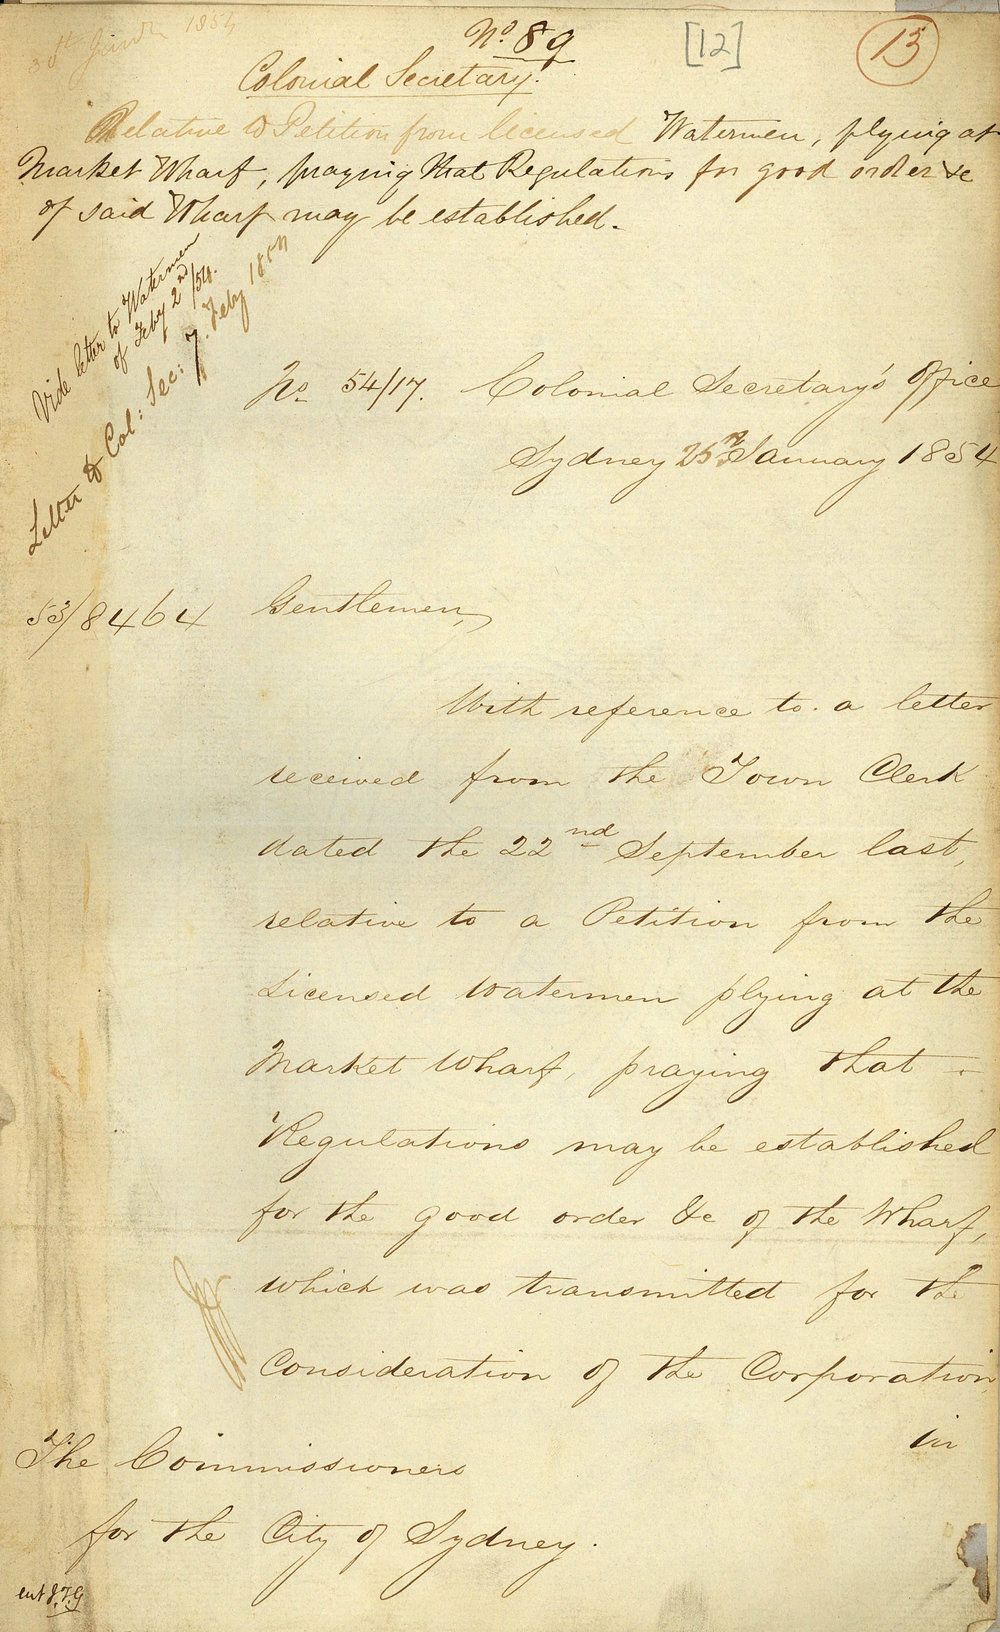 30th Jany 1854
No 89
[12]
13
Colonial Secretary.
Relative to Petition from licensed Watermen, plying at
Market Wharf, praying that Regulations for good order &c
of said Wharf may be established.
Vide letter to Watermen
of Feby 2nd /54.
Letter to Col: Sec: 7. Feby 1854
No 54/17. Colonial Secretary's Office
Sydney 25th January 1854
53/8464
Gentlemen,
With reference to a letter
received from the Town Clerk
dated the 22nd September last,
relative to a Petition from the
Licensed Watermen plying at the
Market Wharf, praying that
Regulations may be established
for the good order &c of the Wharf,
which was transmitted for the
Consideration of the Corporation
in
The Commissioners
for the City of Sydney.
ent J.T.G